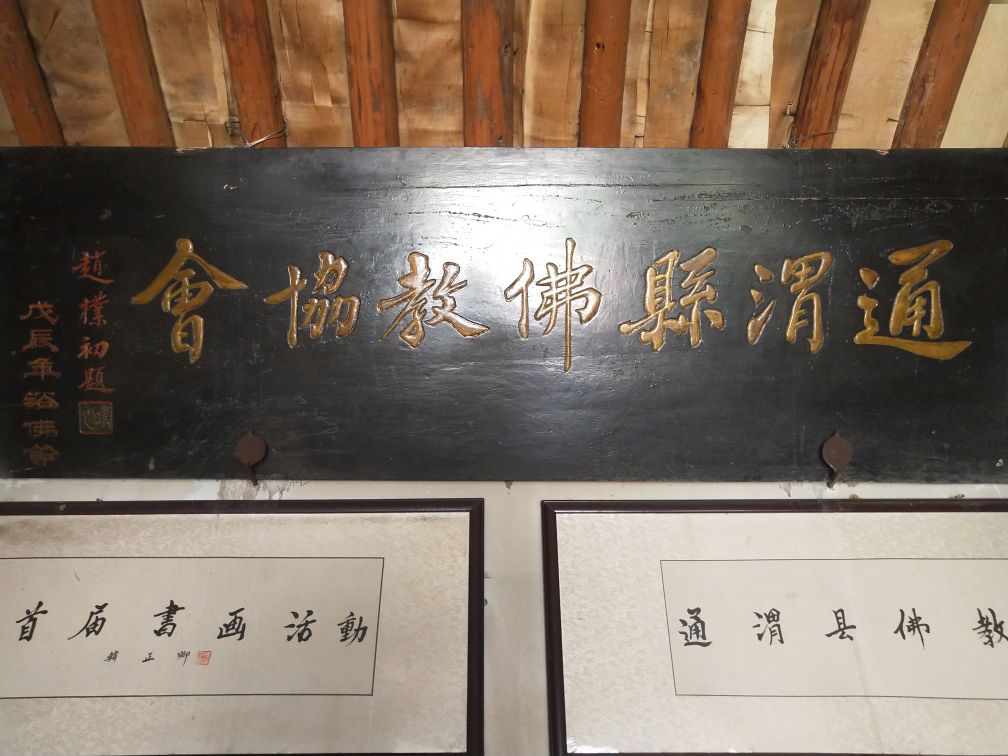 通渭縣佛教協會
趙樸初題
戊辰年浴佛節
通渭县佛教
首届書画活動
韓正卿